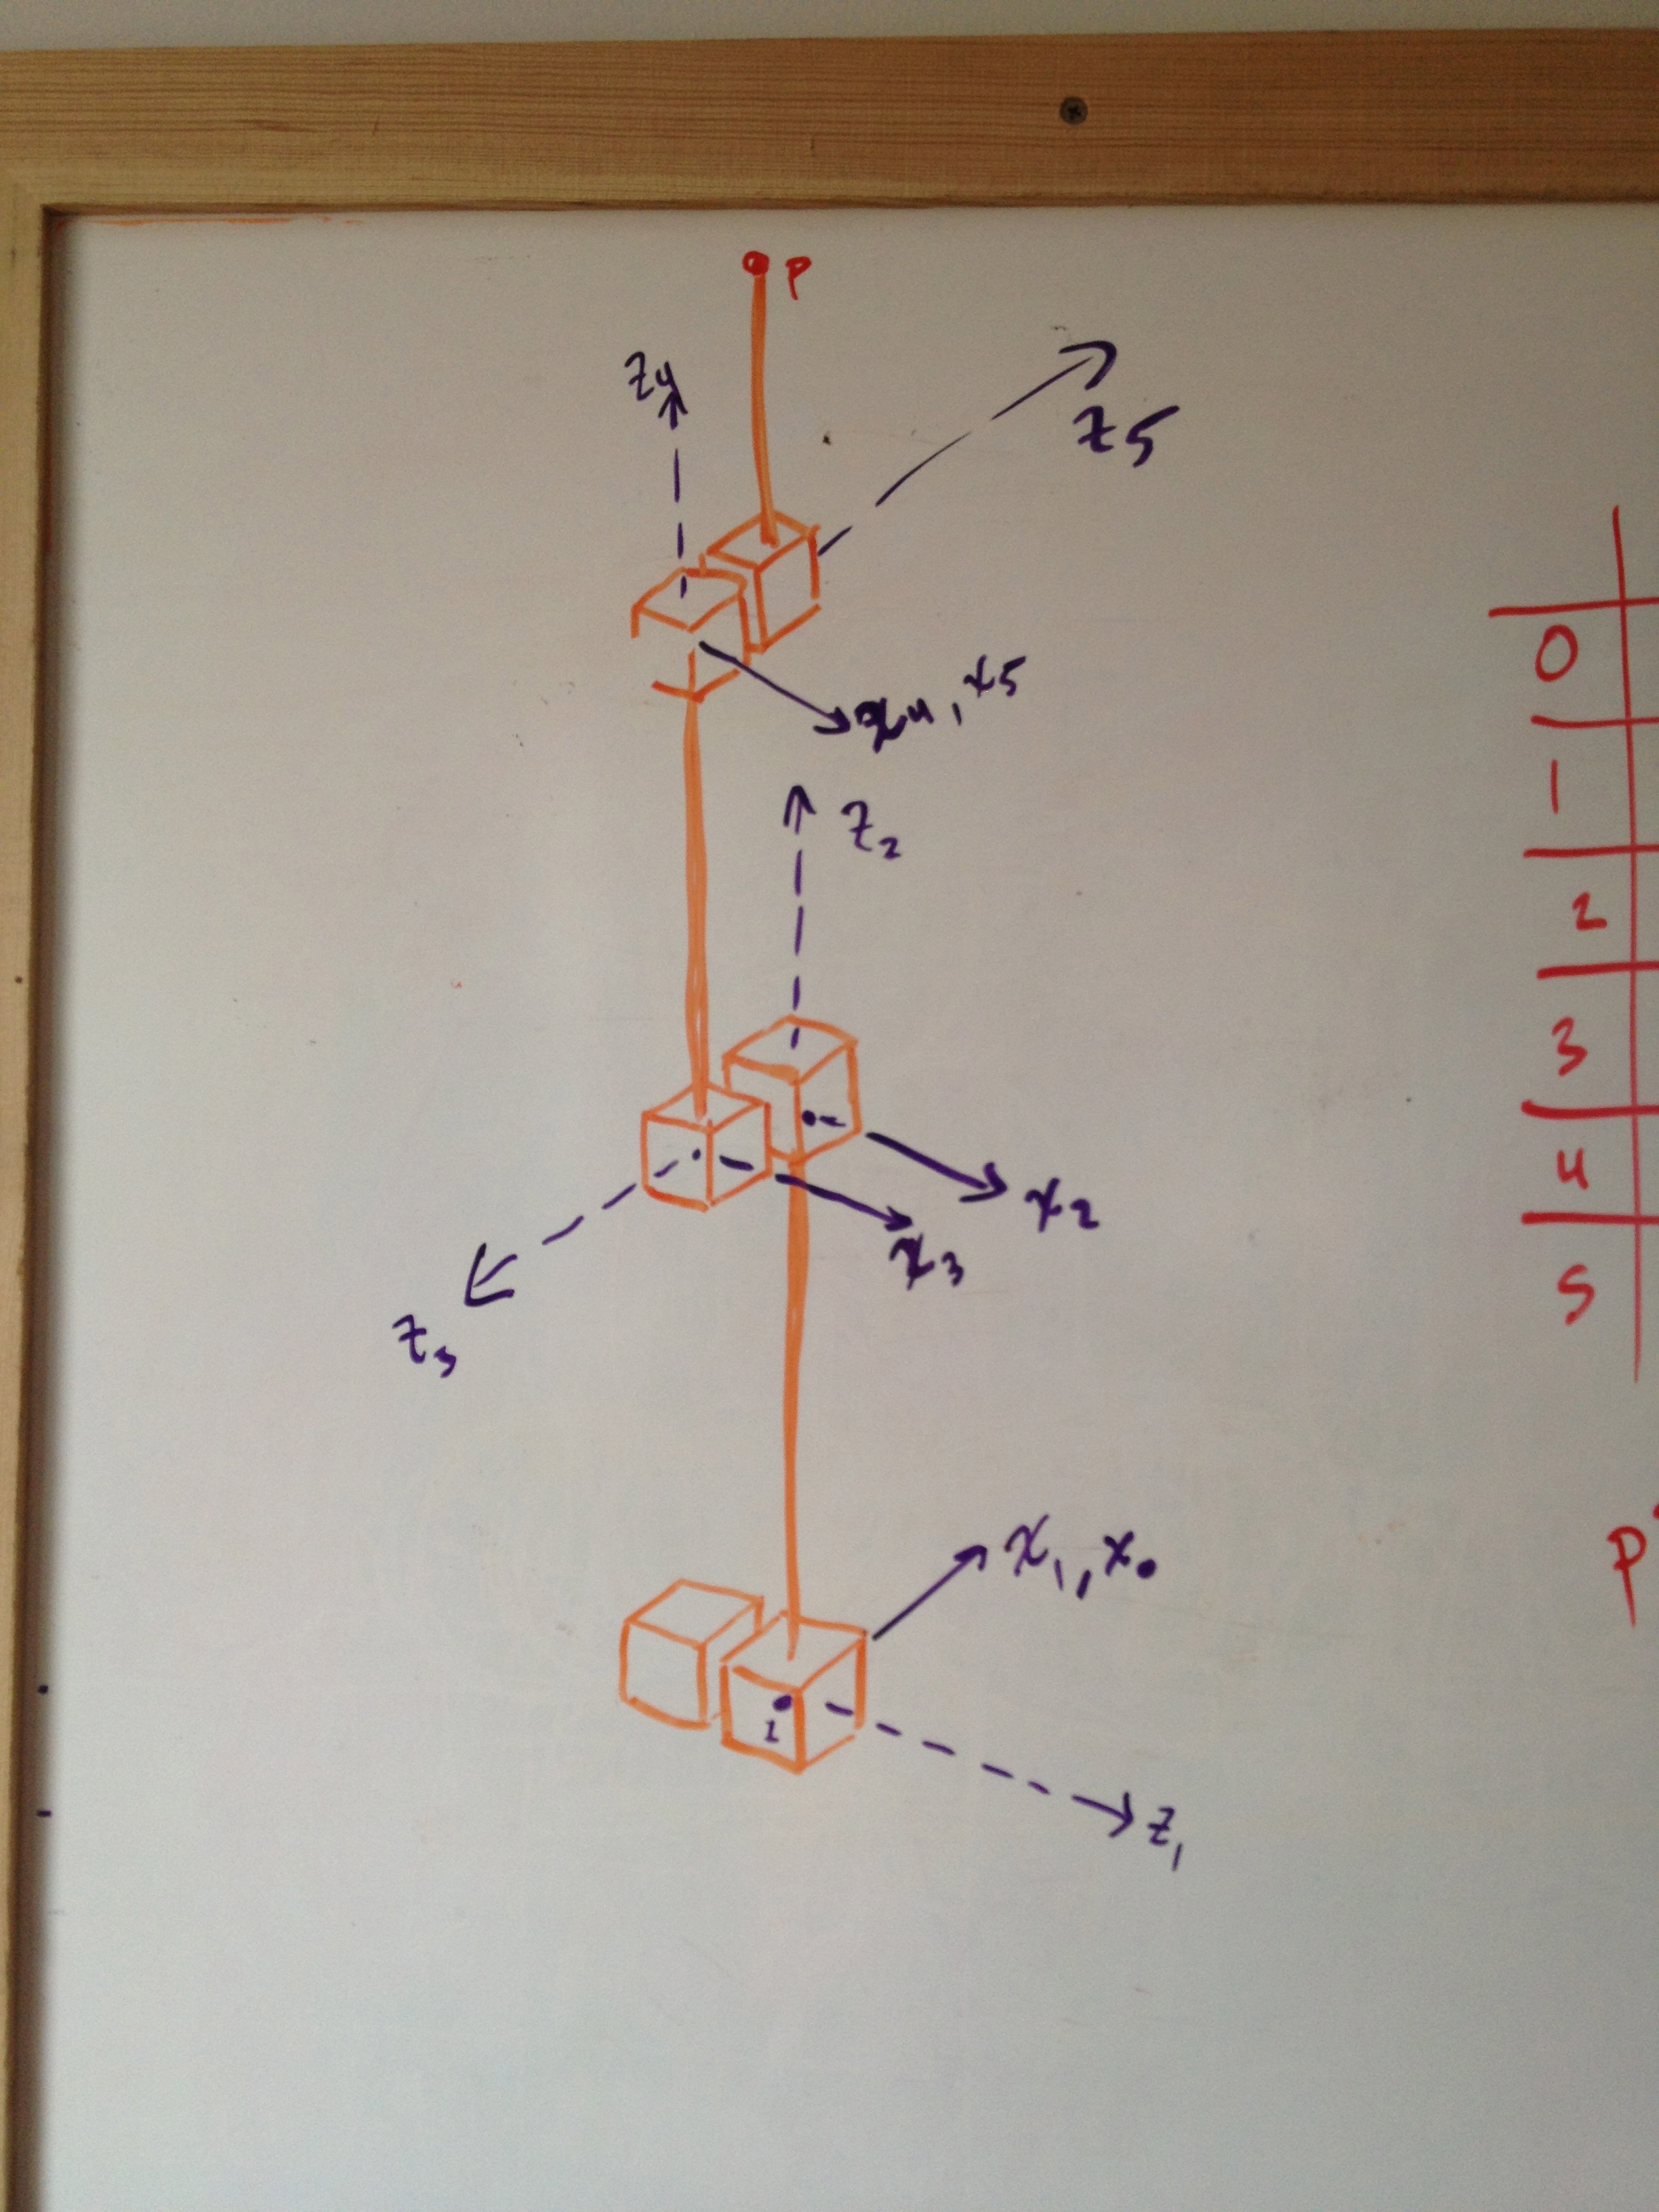 P
z4
z5
x4, x5
z2
x2
x3
z3
x1, x0
1
z1
0
1
2
3
4
5
P